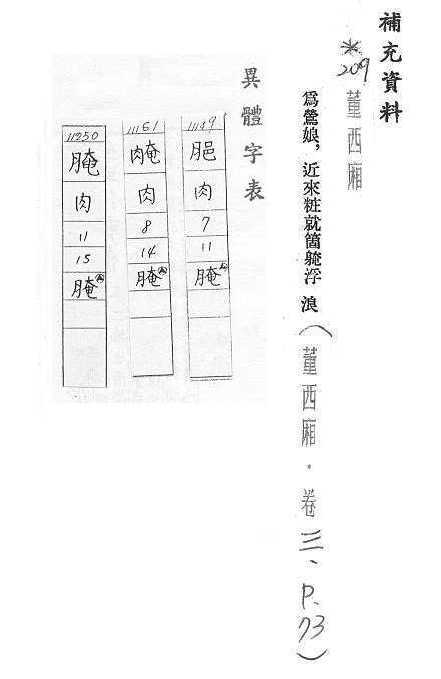 補充資料
*209 董西廂
為鶯娘，近來粧就箇軃浮浪（董西廂．卷三、P.73）
異體字表
11149
肥
肉
7
11
腌
11161
腌
肉
8
14
腌
11250
腌
肉
11
15
腌